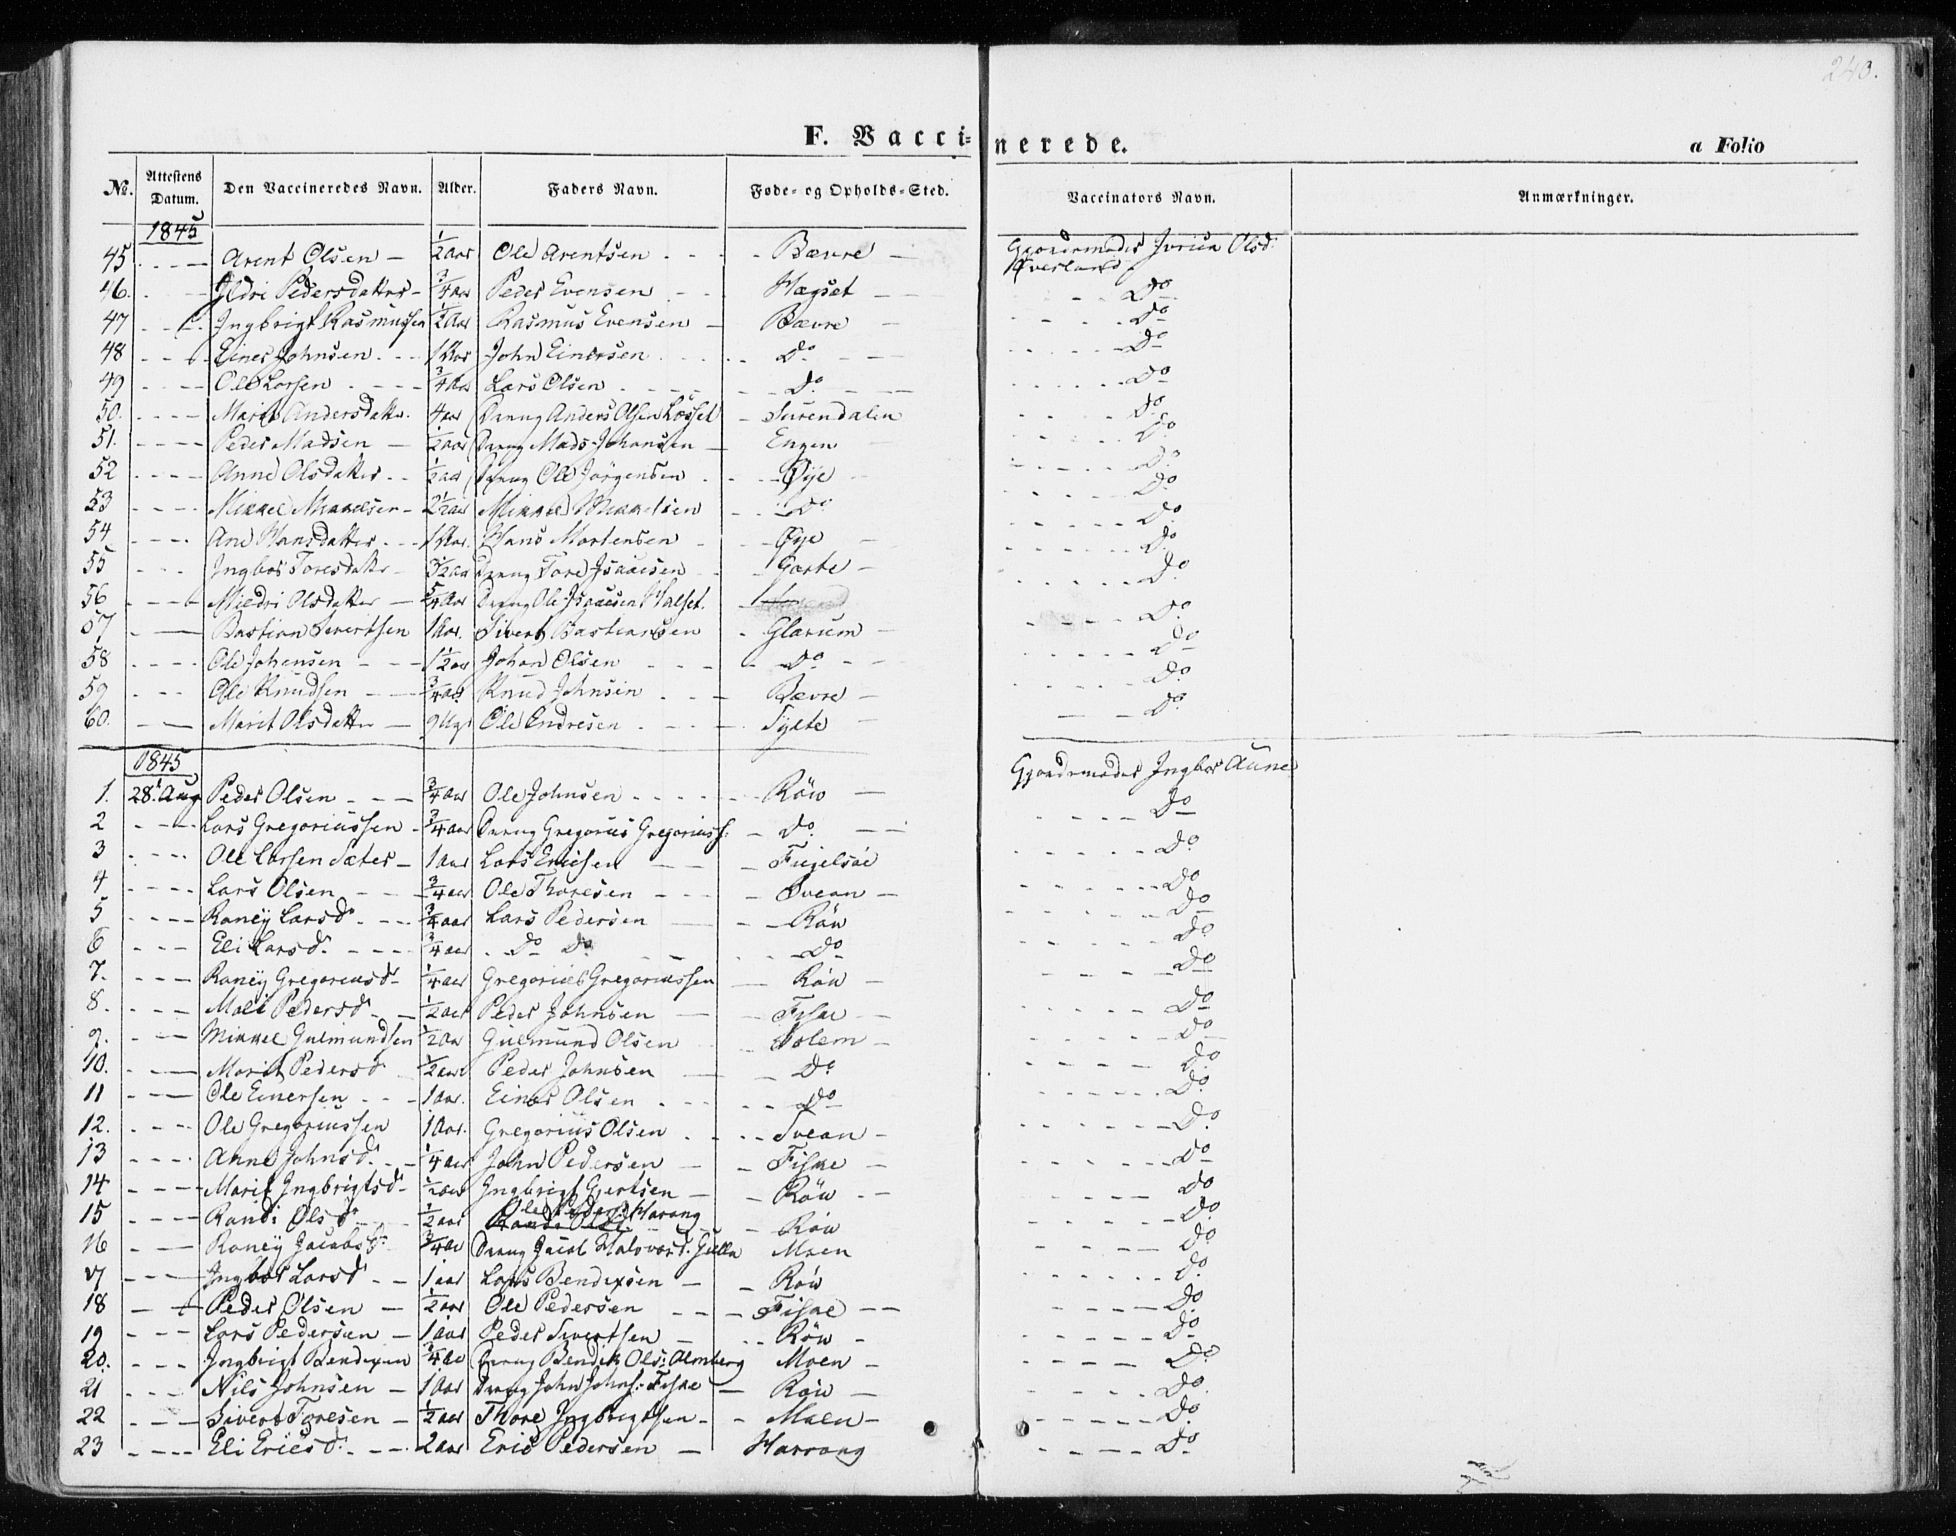 243.
F. Vaccinerede.
a Folio
No. Attestens Datum. Den Vaccineredes Navn. Alder. Faders Navn. Føde- og Opholds-Sted. Vaccinators Navn. Anmærkninger.
1845
45 Arent Olsen 1/2 Aar Ole Arentsen Bævre Gjordemoder Olsd.
46. Ildri Pedersdatter 3/4 Aar Peder Evensen Hægset Do
47 Ingbrigt Rasmussen 1/2 Aar Rasmus Evensen Bævre Do
48 Einer Johnsen 1 Aar John Einersen Do Do
49 Ole Larsen 3/4 Aar Lars Olsen Do Do
50. Marit Andersdatter 4 aar Anders Olsen Surendalen Do
51. Peder Madsen 1/2 aar Mads Johansen Engen Do
52 Anne Olsdatter 1/2 aar Ole Jørgensen Øye Do
53 Mikkel Mikkelsen 2 1/2 aar Mikkel Mikkelsen Do Do
54 Ane Hansdatter 1 Aar. Hans Mortensen Øye Do
55 Ingbor Toresdatter Tore Isaacsen Garte Do
56 Mildri Olsdatter 5/4 Aar Ole Isaacsen Halset. Do
57 Bastian Sivertsen 1 Aar. Sivert Bastiansen Glærum Do
58 Ole Johansen 1 1/2 aar Johan Olsen Do Do
59 Ole Knudsen 3/4 Aar Knud Johnsen Bævre Do
60. Marit Olsdatter Ole Endresen Do
1845
1. 28. Aug Peder Olsen 3/4 Aar Ole Johnsen Röw Gjordemoder Ingbor Aune
2 Lars Gregoriussen 3/4 aar Gregorius Gregoriuss: Do Do
3 Ole Larsen Sæter 1 aar Lars Ericsen Do
4 Lars Olsen 3/4 aar Ole Thoresen Svean Do
5 Raney Larsd. 3/4 aar Lars Pedersen Röw Do
6 Eli Larsd. 3/4 aar Do Do Do Do
7. Raney Gregoriusd 1/4 aar Gregorius Gregoriussen Röw Do
8. Mali Pedersd. 1/2 aar Peder Johnsen Fiske Do
9. Mikkel Gulmundsen 1/2 Aar Gulmund Olsen Solem Do
10. Marit Pedersd 1/2 aar Peder Johnsen Do Do
11 Ole Einersen 1 aar. Einer Olsen Do Do
12. Ole Gregoriussen 1 Aar. Gregorius Olsen Svean Do
13 Anne Johnsd. 1/4 aar John Pedersen Fiske Do
14 Marit Ingbrigtsd 1/2 aar Ingbrigt Gjertsen Röw Do
15 Randi Olsd 1/2 aar Ole Peders Harang Röw Do
16 Raney Jacobsd: 3/4 aar Jacob Halvors. Gulla Moen Do
17 Ingbor Larsd 1 aar Lars Bendixsen Röw Do
18 Peder Olsen 1/2 aar Ole Pedersen Fiske Do
19 Lars Pedersen 1 aar Peder Sivertsen Röw Do
20. Ingbrigt Bendixen 3/4 aar Bendik Ols: Almberg Moen Do
21 Nils Johnsen 1 Aar John Johns: Fiske Röw Do
22 Sivert Toresen 1/2 aar Thore Ingbrigtsen Moen Do
23 Eli Ericsd. 2 aar Eric Pedersen Harrang Do